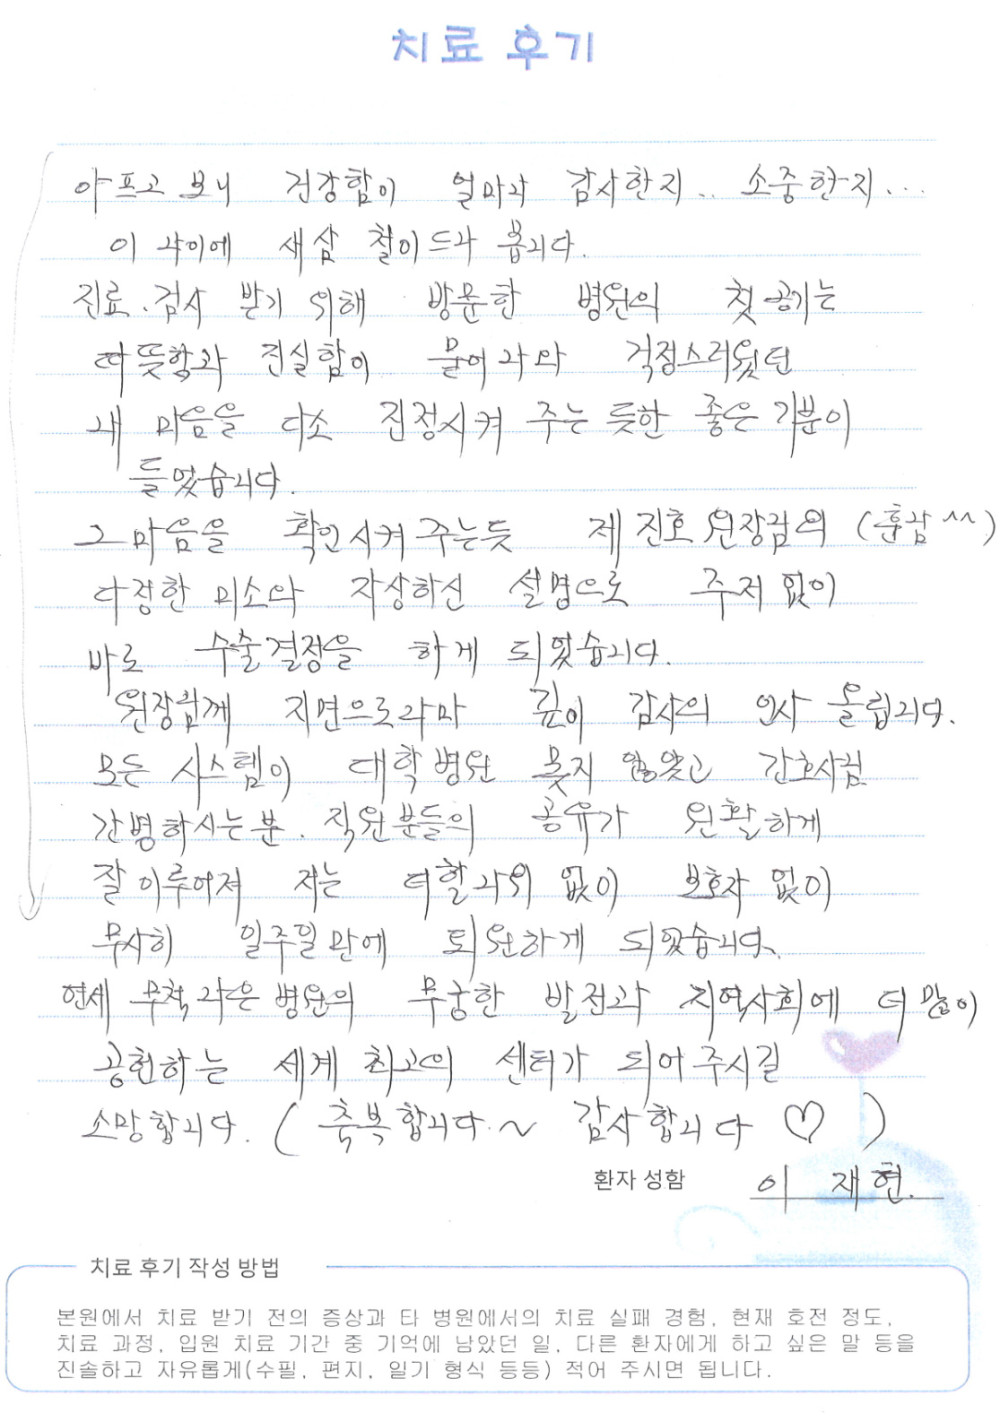 치료 후기
아프고 보니 건강함이 얼마나 감사한지.. 소중한지...
이 나이에 새삼 철이드나 봅니다.
진료.검사 받기 위해 방문한 병원의 첫 공기는
따뜻함과 진실함이 묻어나와 걱정스러웠던
내 마음을 다소 진정시켜 주는 듯한 좋은 기분이
들었습니다.
그 마음을 확인시켜 주는듯 제진호 원장님의 (훈남 ^^)
다정한 미소와 자상하신 설명으로 주저 없이
바로 수술결정을 하게 되었습니다.
원장님께 지면으로라마 깊이 감사의 인사 올립니다.
모든 시스템이 대학병원 못지 않았고 간호사님
간병하시는분. 직원분들의 공유가 원활하게
잘이루어져 저는 더할나위 없이 보호자 없이
무사히 일주일만에 퇴원하게 되었습니다.
연세 무척 나은 병원의 무궁한 발전과 지역사회에 더 많이
공헌하는 세계 최고의 센터가 되어주시길
소망합니다. ( 축복합니다.~ 감사합니다 ♡ )
환자 성함 이 재현.
치료 후기 작성 방법
본원에서 치료 받기 전의 증상과 타 병원에서의 치료 실패 경험, 현재 호전 정도,
치료 과정, 입원 치료 기간 중 기억에 남았던 일, 다른 환자에게 하고 싶은 말 등을
진솔하고 자유롭게(수필, 편지, 일기 형식 등등) 적어 주시면 됩니다.